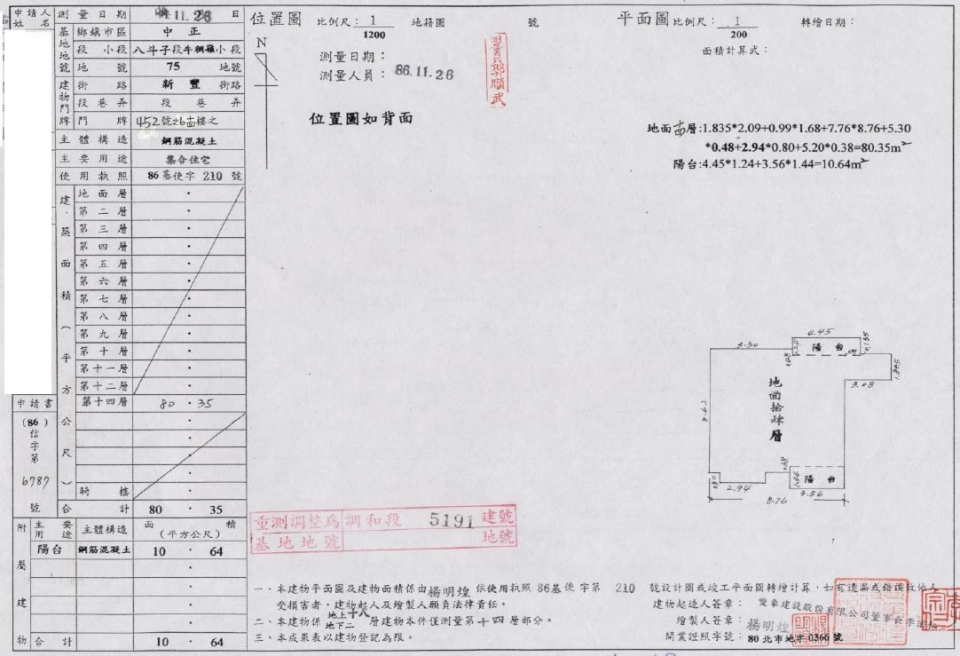 申請人姓名
測量日期 86.11.26 日
位置圖 比例尺：1/1200 地籍圖 號
平面圖 比例尺：1/200 轉繪日期：
基地地號 鄉鎮市區 中正
段 小段 八斗子段牛稠嶺小段
地號 75 地號
建物門牌 街路 新豐 街路
段巷弄 段 巷 弄
門牌 452號之6 樓之
主體構造 鋼筋混凝土
主要用途 集合住宅
使用執照 86基使字 210 號
N
測量日期：
測量人員： 86.11.26
位置圖如背面
面積計算式：
層:1.835*2.09+0.99*1.68+7.76*8.76+5.30
*0.48+2.94*0.80+5.20*0.38=80.35m²
陽台:4.45*1.24+3.56*1.44=10.64m²
建築面積（平方公尺）
地面層
第二層
第三層
第四層
第五層
第六層
第七層
第八層
第九層
第十層
第十一層
第十二層
第十四層 80．35
騎樓
合計 80 35
申請書
(86)
信字第
6787
號
附屬建物
主要用途 主體構造 面積（平方公尺）
陽台 鋼筋混凝土 10．64
合計 10 64
4.45
陽台
5.30
3.08
地面拾肆層
2.94
陽台
3.56
8.76
重測調整為 調和段 5191 建號
基地地號 地號
一、本建物平面圖及建物面積係由楊明煌依使用執照 86基使字第 210 號設計圖或竣工平面圖轉繪計算，如有遺漏或錯誤致他人
受損害者，建物起人及繪製人願負法律責任。
二、本建物係 地上十八 地下二 層建物本件僅測量第十四層部分。
三、本成果表以建物登記為限。
建物起造人簽章：雙象建設股份有限公司董事長李
繪製人簽章：楊明煌
開業證照字號：80北市地字0366號